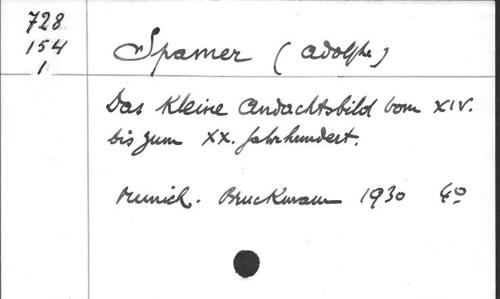 728
154
1
Spamer (Adolphe)
Das Kleine Andachtsbild vom XIV.
bis zum XX. Jahrhundert.
Munich. Bruckmann 1930 4o